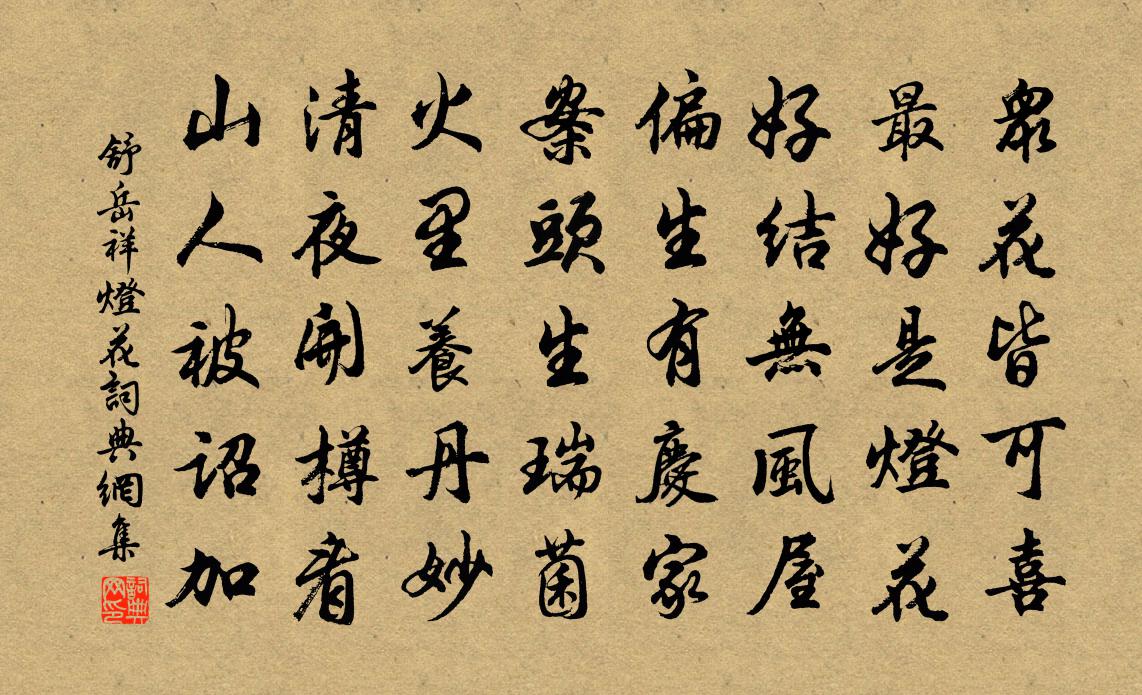 眾花皆可喜
最好是燈花
好結無風屋
偏生有慶家
案頭生瑞菌
火里養丹妙
清夜開樽看
山人被詔加
舒岳祥燈花詞典網集
詞典網印